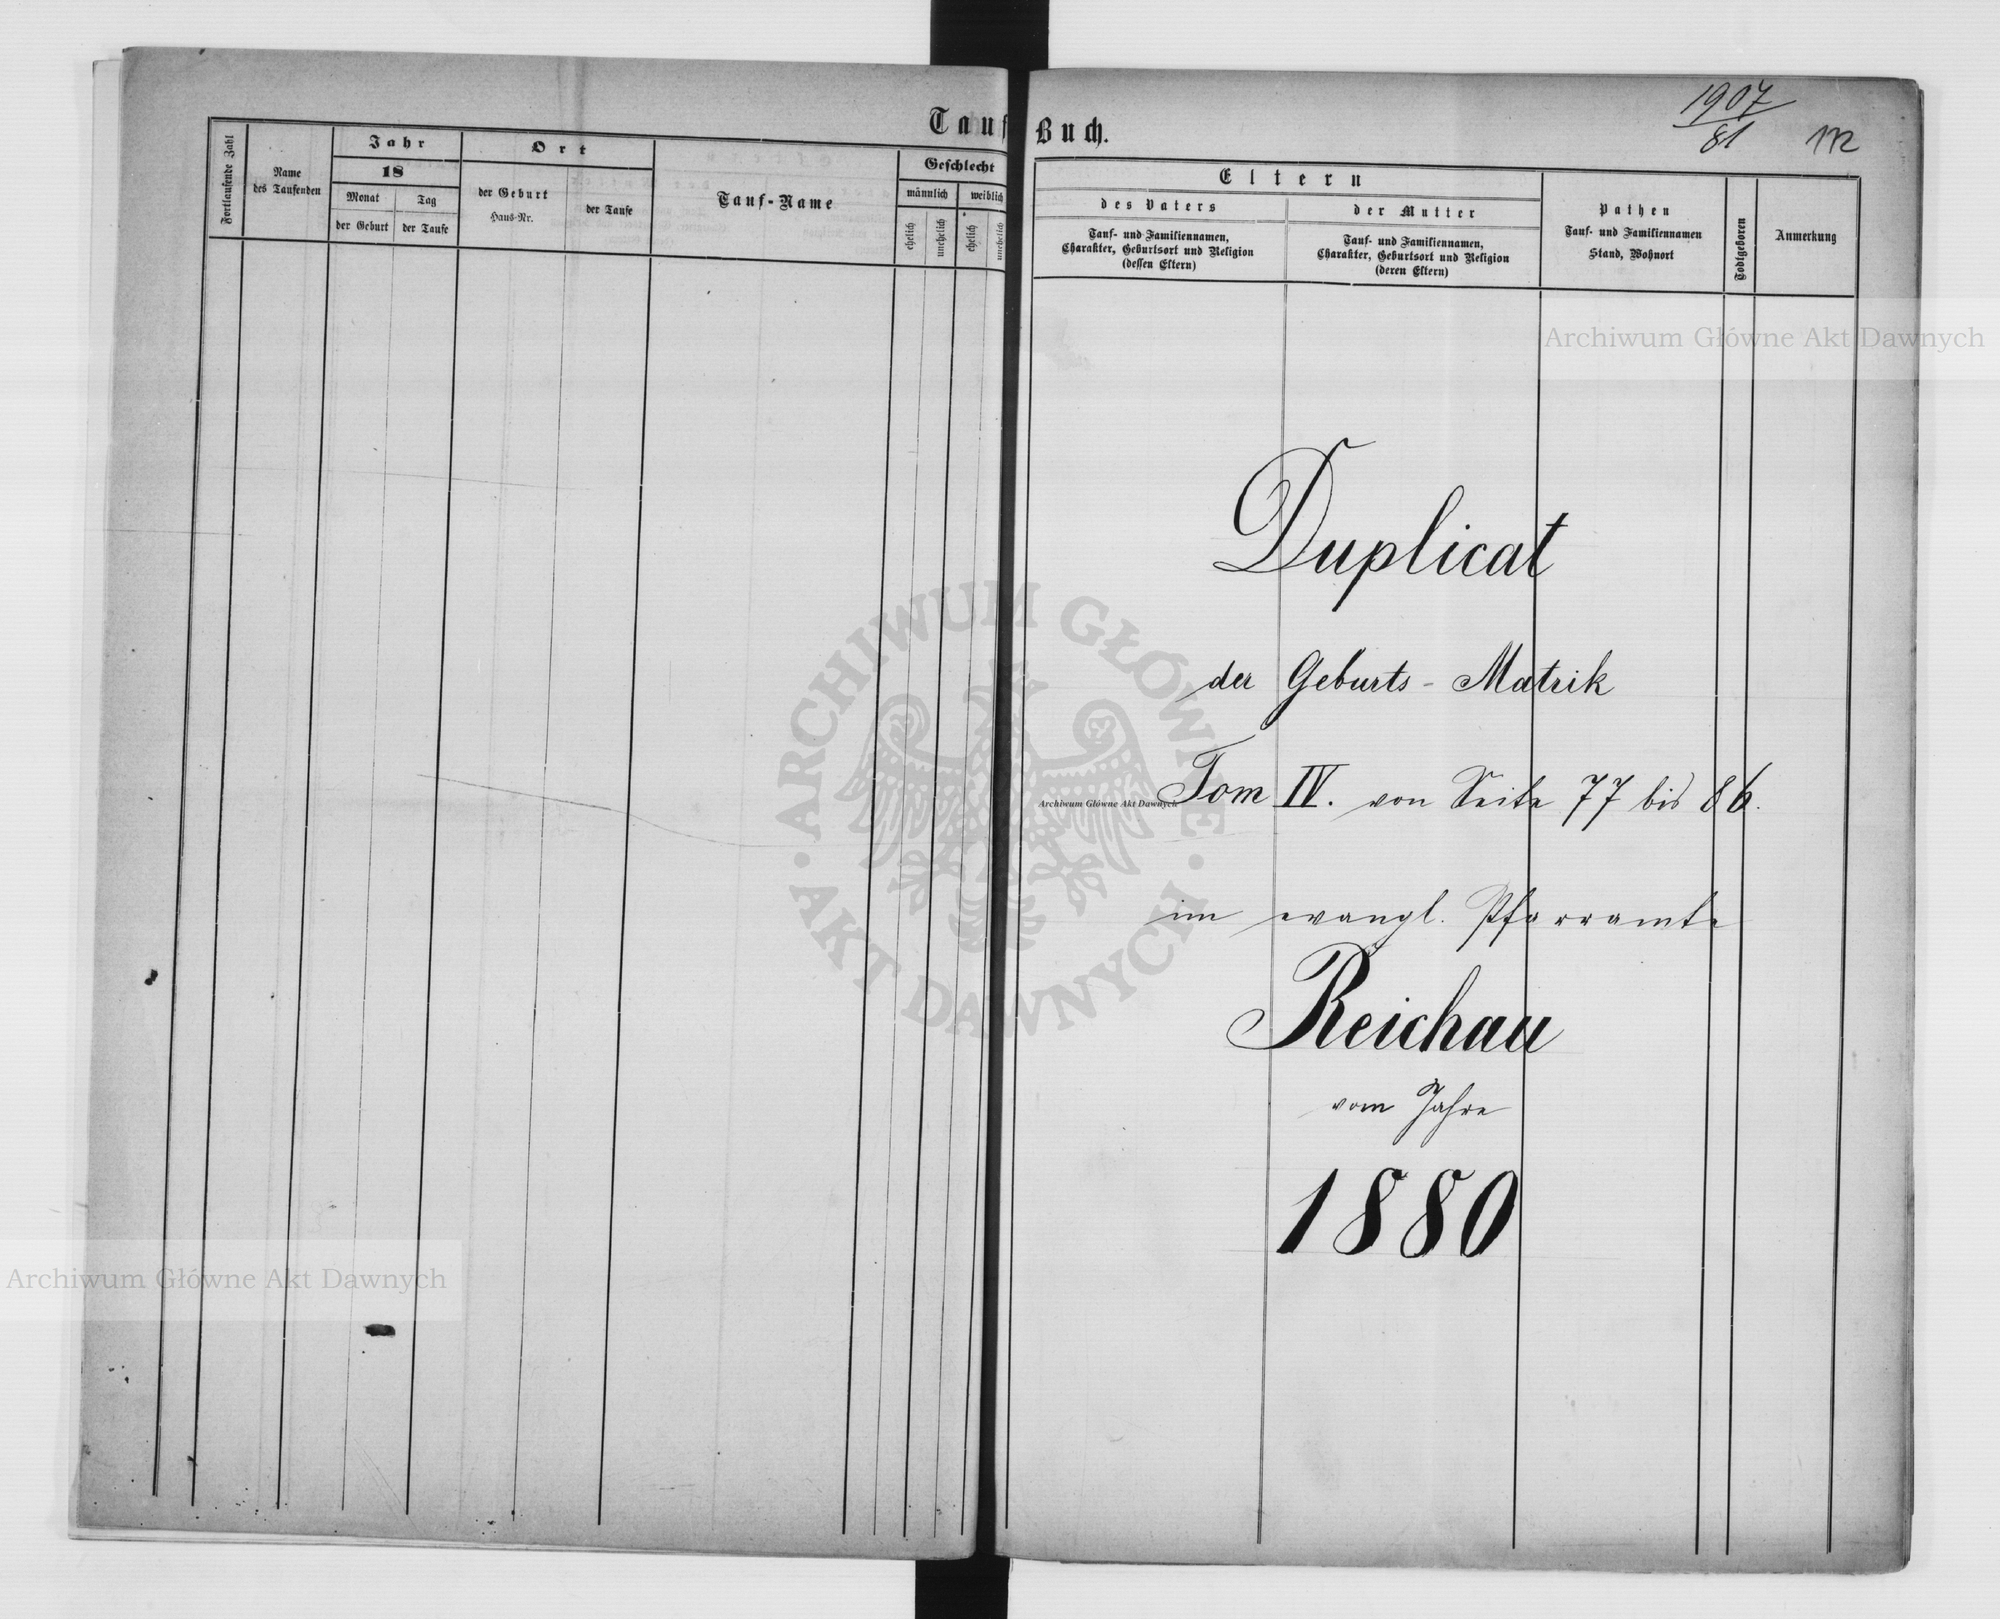 Tauf Buch.
1907
81
112
Fortlaufende Zahl
Name
des Taufenden
Jahr
18
Monat
Tag
der Geburt
der Taufe
Ort
der Geburt
Haus-Nr.
der Taufe
Tauf-Name
Geschlecht
männlich
weiblich
ehelich
unehelich
ehelich
unehelich
Eltern
des Vaters
Tauf- und Familiennamen,
Charakter, Geburtsort und Religion
(dessen Eltern)
der Mutter
Tauf- und Familiennamen,
Charakter, Geburtsort und Religion
(deren Eltern)
Pathen
Tauf- und Familiennamen
Stand, Wohnort
Todtgeboren
Anmerkung
Archiwum Główne Akt Dawnych
Duplicat
der Geburts-Matrik
Tom IV. von Seite 77 bis 86.
im evangl. Pfarramte
Reichau
vom Jahre
1880
ARCHIWUM GŁÓWNE · AKT DAWNYCH ·
Archiwum Główne Akt Dawnych
Archiwum Główne Akt Dawnych